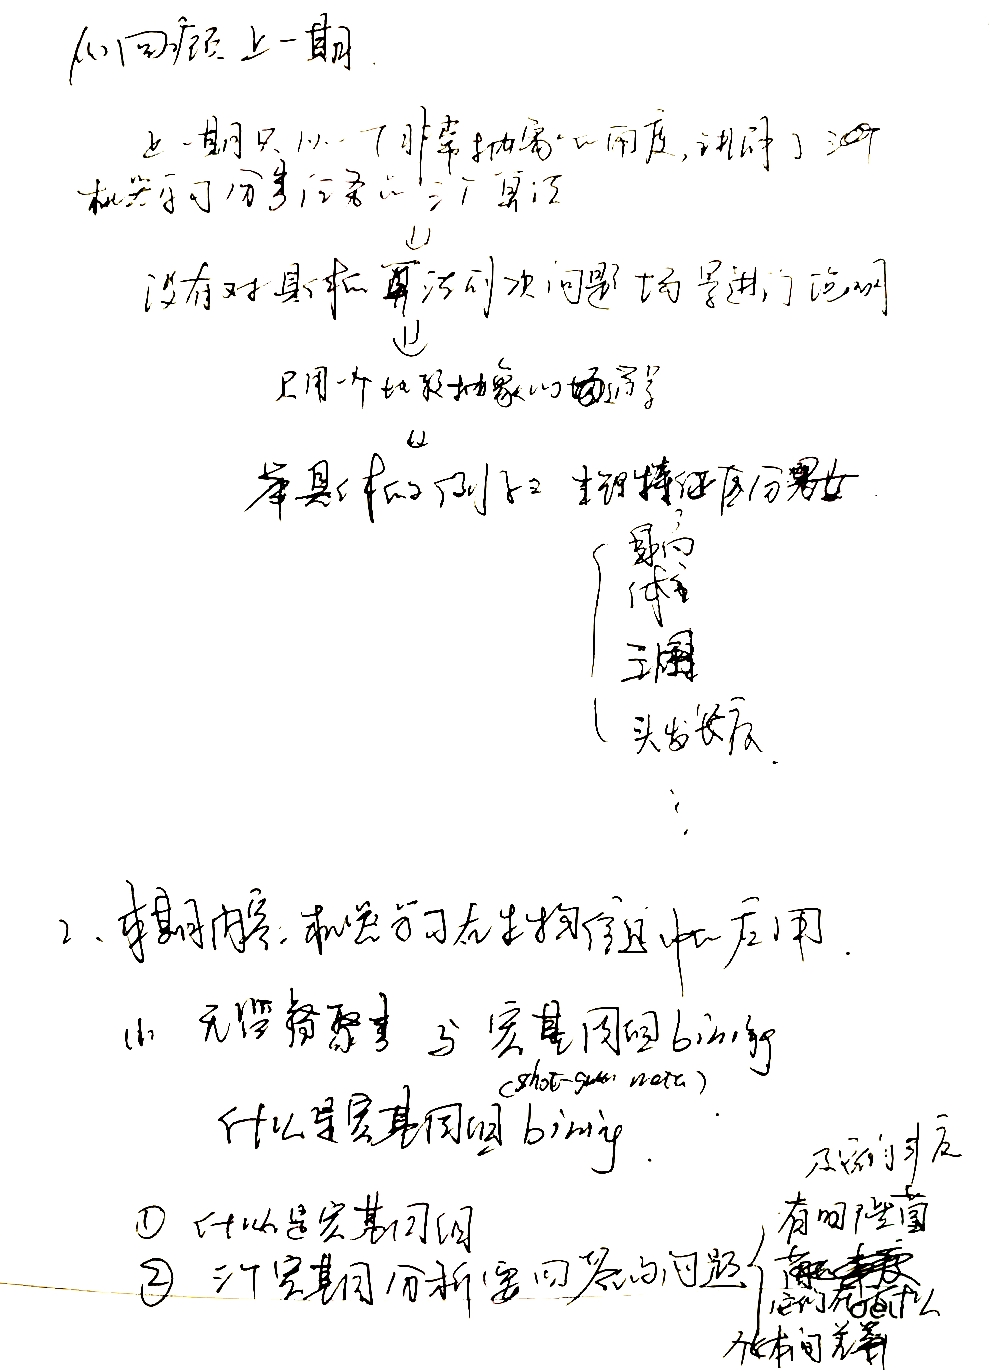 回顾上一期.
上一期只从一个非常抽象的角度,讲解了
机器学习分类任务的三个算法
没有对具体的算法解决问题场景进行说明
只用一个比较抽象的场景
举具体的例子 生理特征区分男女
身高
体重
三围
头发长度.
2、本期内容:机器学习在生物信息中的应用.
(1) 无监督聚类 与 宏基因组binning
(shot-gun meta)
什么是宏基因组binning.
① 什么是宏基因组
② 三个宏基因分析要回答的问题
有哪些菌
它们在干什么
样本间差异